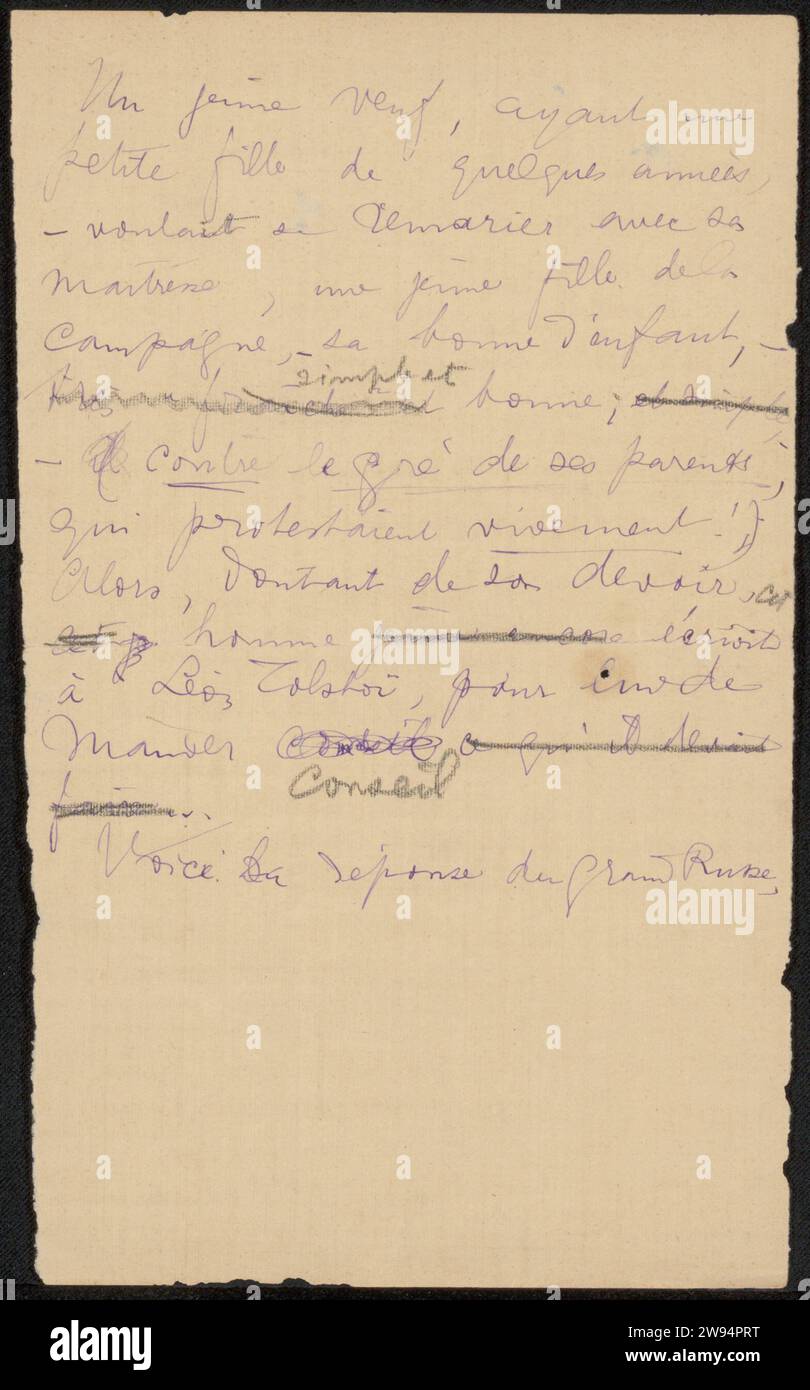 Un jeune veuf, ayant une
petite fille de quelques années,
– voulait se remarier avec sa
maîtresse, une jeune fille de la
campagne, – sa bonne d'enfant, –
simple et
très bonne; et simple
– contre le gré de ses parents,
qui protestaient vivement!)
Alors, doutant de son devoir, cet
homme écrivit
à Léon Tolstoï, pour lui de
mander conseil ce qu'il devait
conseil
faire...
Voici la réponse du grand Russe,
alamy
alamy
Image ID: 2W94PRT
www.alamy.com